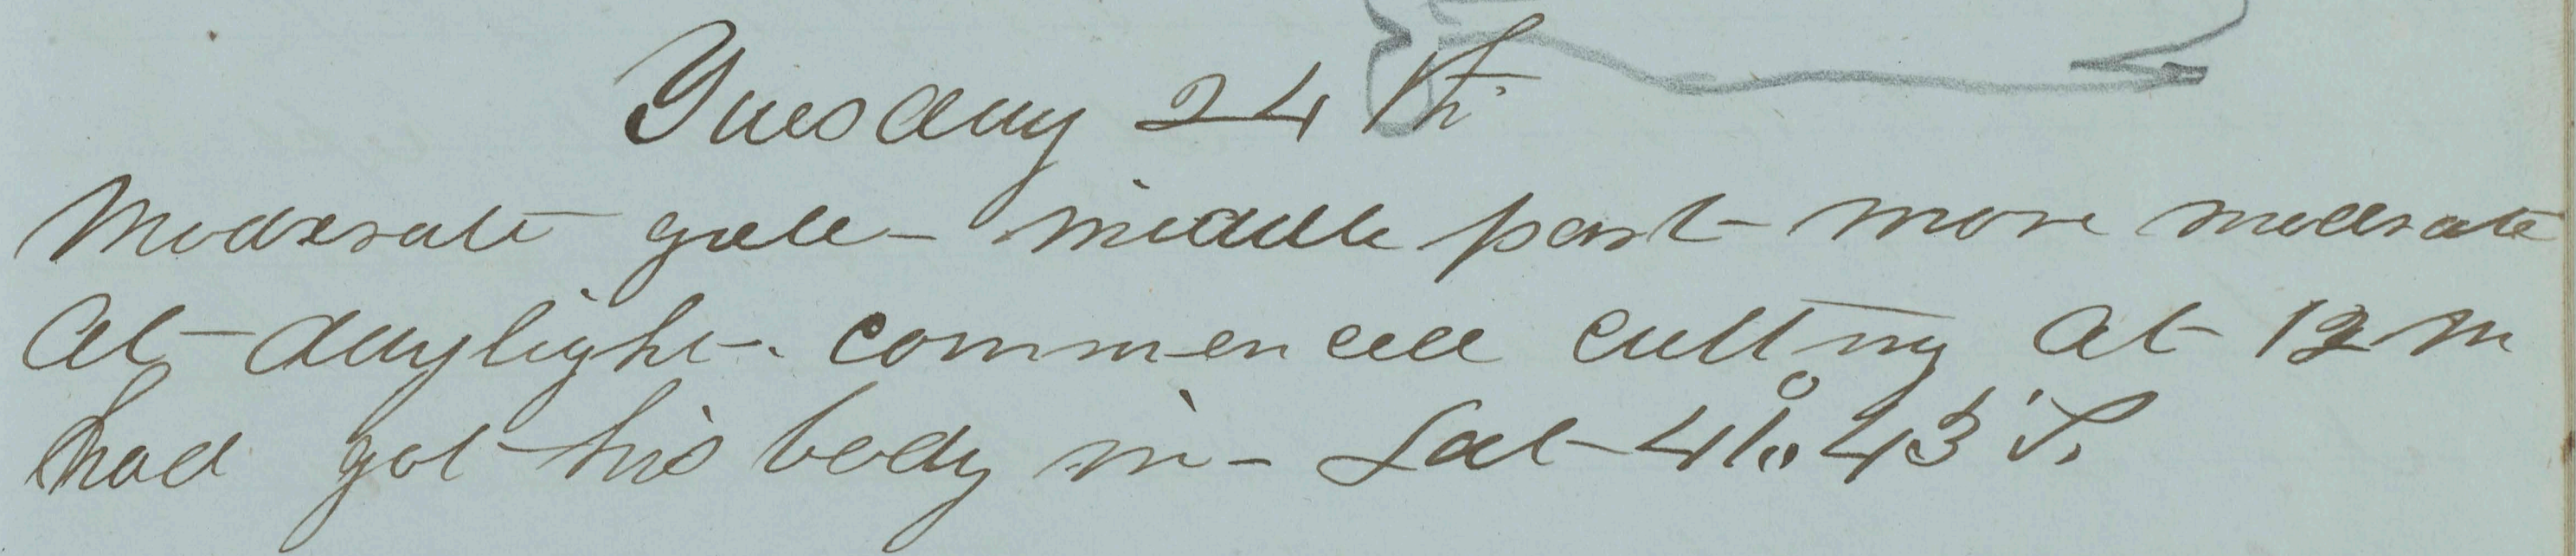 Tuesday 24th
Moderate gale - middle part more moderate
At daylight. commenced cutting at 12 m
had got his body in - Lat 41°.43' S.